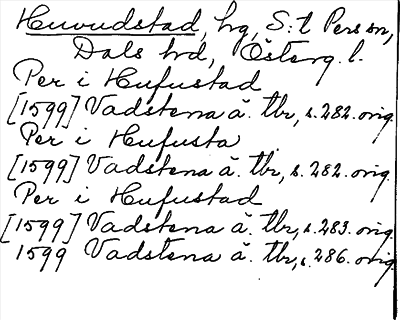 Huvudstad, hg, S:t Pers sn,
Dals hd, Österg. l.
Per i Hufustad
[1599] Vadstena ä. tbr, s. 282. orig.
Per i Hufusta
[1599] Vadstena ä. tbr, s. 282. orig.
Per i Hufustad
[1599] Vadstena ä. tbr, s. 283. orig.
1599 Vadstena ä. tbr, s. 286. orig.